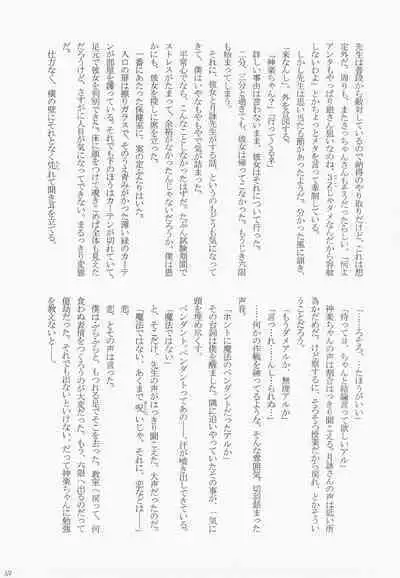 先生は普段から敵対しているので納得のやり取りだけど、これは想
定外だ。周りも、またきっちゃんさんもようだったらしい。「何よ
アンタもやっぱり姐さん思いなのね、ぷるしャダメなんだから容赦
しないわよ」とかちょっとメタを言って牽制している。
しかし先生は思い当たる節があったようだ。分かった風に頷き、
「来なんし」、外を合図する。
「神楽ちゃん？」「行ってくるネ」
詳しい事由は言わないまま、彼女はそれについて行った。
二分、三分と過ぎても、彼女は帰ってこなかった。もうじき六限
も始まってしまう。
それに、彼女と月詠先生がする話、というのもどうも気になって
しまって、僕はいやなもやもやで気が詰まった。
平常心でなら、こんなことしなかったはずだ。たぶん試験期間で
ストレスがたまって、余裕がなかったんじゃないだろうか、僕は愚
かにも、彼女を探しに席を立った。
一番にあたった保健室に、案の定ふたりはいた。
入口の扉は擦りガラスで、そのうえ青みがかった薄い緑のカーテ
ンが部屋を覆っている。それでも下のほうはカーテンが切れていて、
足元で彼女を判別できた。床に顔をつけて覗きこめば全体も見えた
だろうけど、さすがに人目が気になってできない。まるっきり変態
だ。
仕方なく、横の壁にそれとなく凭れて聞き耳を立てる。
「……ろそろ、……たほうがいい」
「待ってヨ、ちゃんと結論言って欲しいアル」
神楽ちゃんの声は割合はっきり聞こえる。月詠さんの声は低い所
為かだめだ。けど察するに、そろそろ授業だから戻れ、とかそうい
うことだろう。
「もうダメアルか、無理アルか」
「言っ……れ……んし……られぬ……」
……何かの作戦を練ってるような、そんな雰囲気。切羽詰まった
声音。
「ホントに魔法のペンダントだったアルか」
その台詞は僕を醒ました。隅に追いやっていたその事が、一気に
頭を埋め尽くす。
ペンダント、ペンダントってあの――、汗が噴き出してきている。
と、そこだけ、先生の声がはっきり聞こえた。大声だったのだ。
「魔法ではない、あくまで呪いじゃ。それに、恋などは――」
恋、とその声は言った。
僕はふらふらと、もつれる足でそこを去った。教室へ戻って、何
食わぬ表情をつくろうのが大変だった。もう、六限へ出るのだって
億劫だった。それでも出ないといけない。だって神楽ちゃんに勉強
を教えないと――。